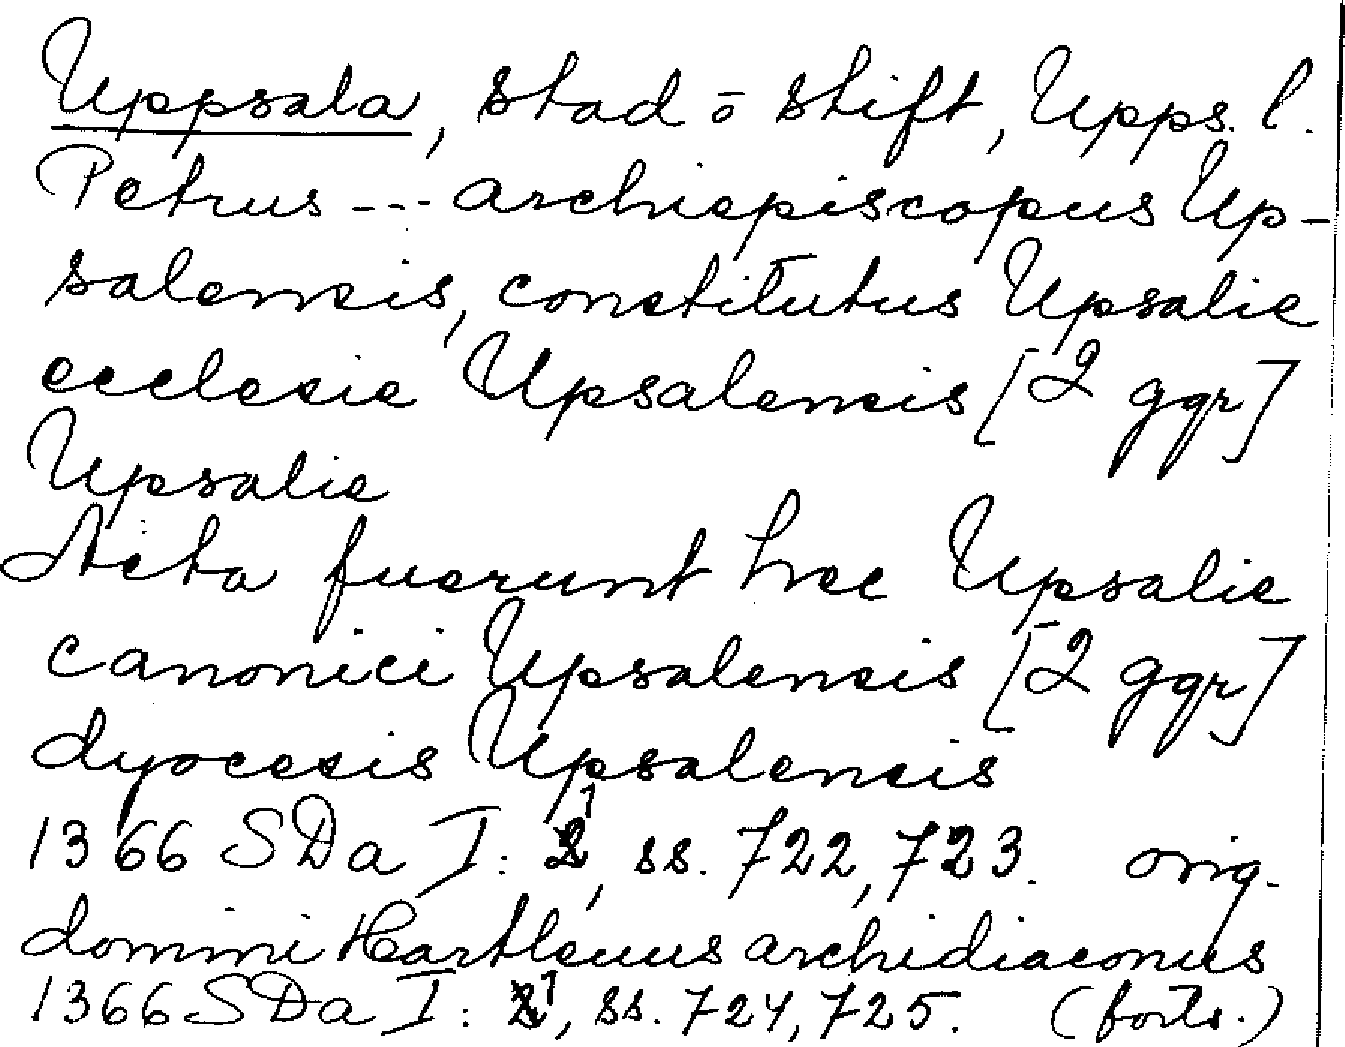 Uppsala, stad ō stift, Upps. l.
Petrus --- archiepiscopus Up-
salensis, constitutus Upsalie
ecclesie Upsalensis [2 ggr]
Upsalie
Acta fuerunt hec Upsalie
canonici Upsalensis [2 ggr]
dyocesis Upsalensis
1366 SDa I: 1, ss. 722, 723. orig.
domini Hartleuus archidiaconus
1366 SDa I: 1, ss. 724, 725. (forts.)